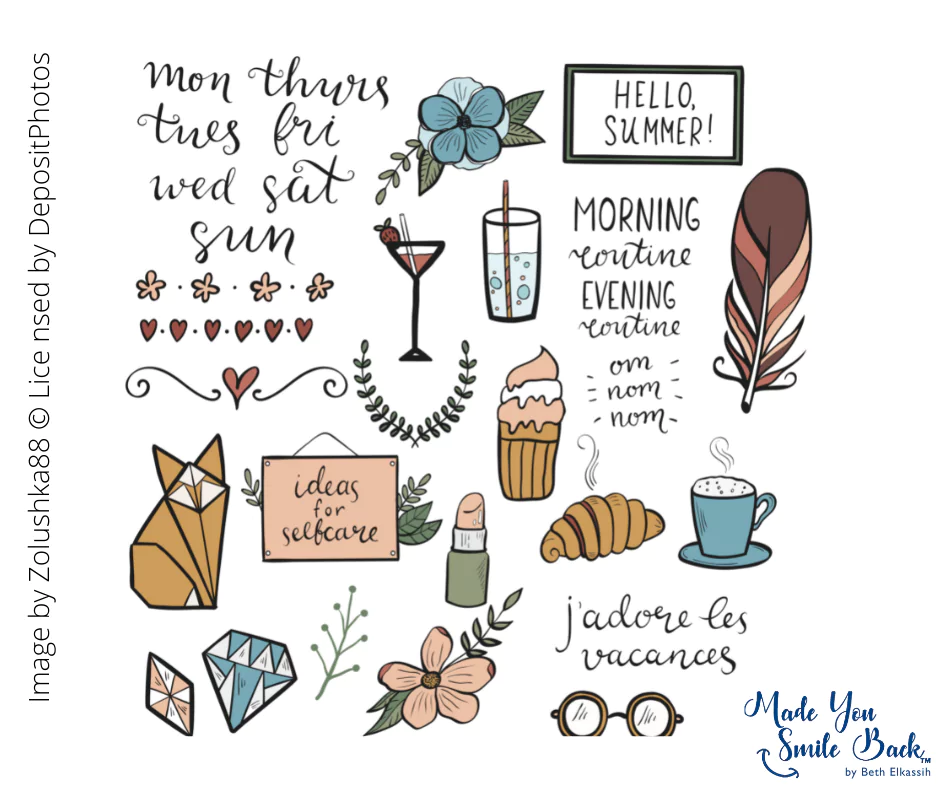 Image by Zolushka88 © Lice nsed by DepositPhotos
mon thurs
tues fri
wed sat
sun
HELLO,
SUMMER!
MORNING
routine
EVENING
routine
om
nom
nom
ideas
for
selfcare
j'adore les
vacances
Made You
Smile Back™
by Beth Elkassih